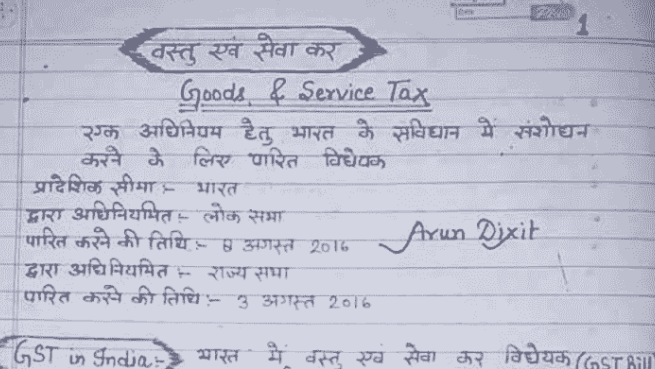 1
वस्तु एवं सेवा कर
Goods & Service Tax
एक अधिनियम हेतु भारत के संविधान में संशोधन
करने के लिए पारित विधेयक
प्रादेशिक सीमा :- भारत
द्वारा अधिनियमित :- लोक सभा
पारित करने की तिथि :- 8 अगस्त 2016 Arun Dixit
द्वारा अधिनियमित :- राज्य सभा
पारित करने की तिथि :- 3 अगस्त 2016
GST in India :- भारत में वस्तु एवं सेवा कर विधेयक (GST Bill